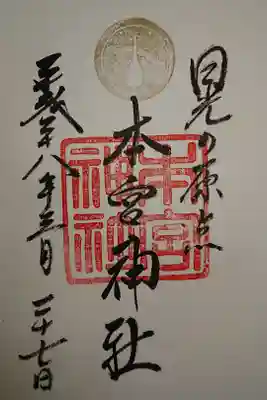 日光の原点
本宮神社
平成二十八年三月二十七日
本宮
神社